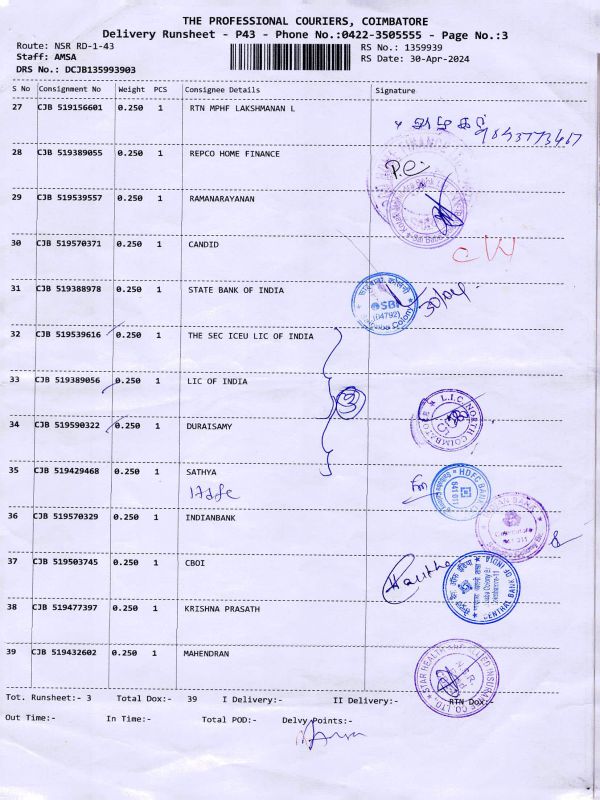 THE PROFESSIONAL COURIERS, COIMBATORE
Delivery Runsheet - P43 - Phone No.:0422-3505555 - Page No.:3
Route: NSR RD-1-43 RS No.: 1359939
Staff: AMSA RS Date: 30-Apr-2024
DRS No.: DCJB135993903
S No Consignment No Weight PCS Consignee Details Signature
27 CJB 519156601 0.250 1 RTN MPHF LAKSHMANAN L
9843773467
28 CJB 519389055 0.250 1 REPCO HOME FINANCE
P.C.
29 CJB 519539557 0.250 1 RAMANARAYANAN
30 CJB 519570371 0.250 1 CANDID
31 CJB 519388978 0.250 1 STATE BANK OF INDIA
SBI
(04792)
30/04
32 CJB 519539616 0.250 1 THE SEC ICEU LIC OF INDIA
33 CJB 519389056 0.250 1 LIC OF INDIA
3
34 CJB 519590322 0.250 1 DURAISAMY
L.I.C NORTH COIMBATORE
35 CJB 519429468 0.250 1 SATHYA
Hdfc
HDFC BANK
641 011
36 CJB 519570329 0.250 1 INDIANBANK
37 CJB 519503745 0.250 1 CBOI
CENTRAL BANK OF INDIA
38 CJB 519477397 0.250 1 KRISHNA PRASATH
39 CJB 519432602 0.250 1 MAHENDRAN
STAR HEALTH AND ALLIED INSURANCE CO. LTD.
Tot. Runsheet:- 3 Total Dox:- 39 I Delivery:- II Delivery:- RTN Dox:-
Out Time:- In Time:- Total POD:- Delvy Points:-